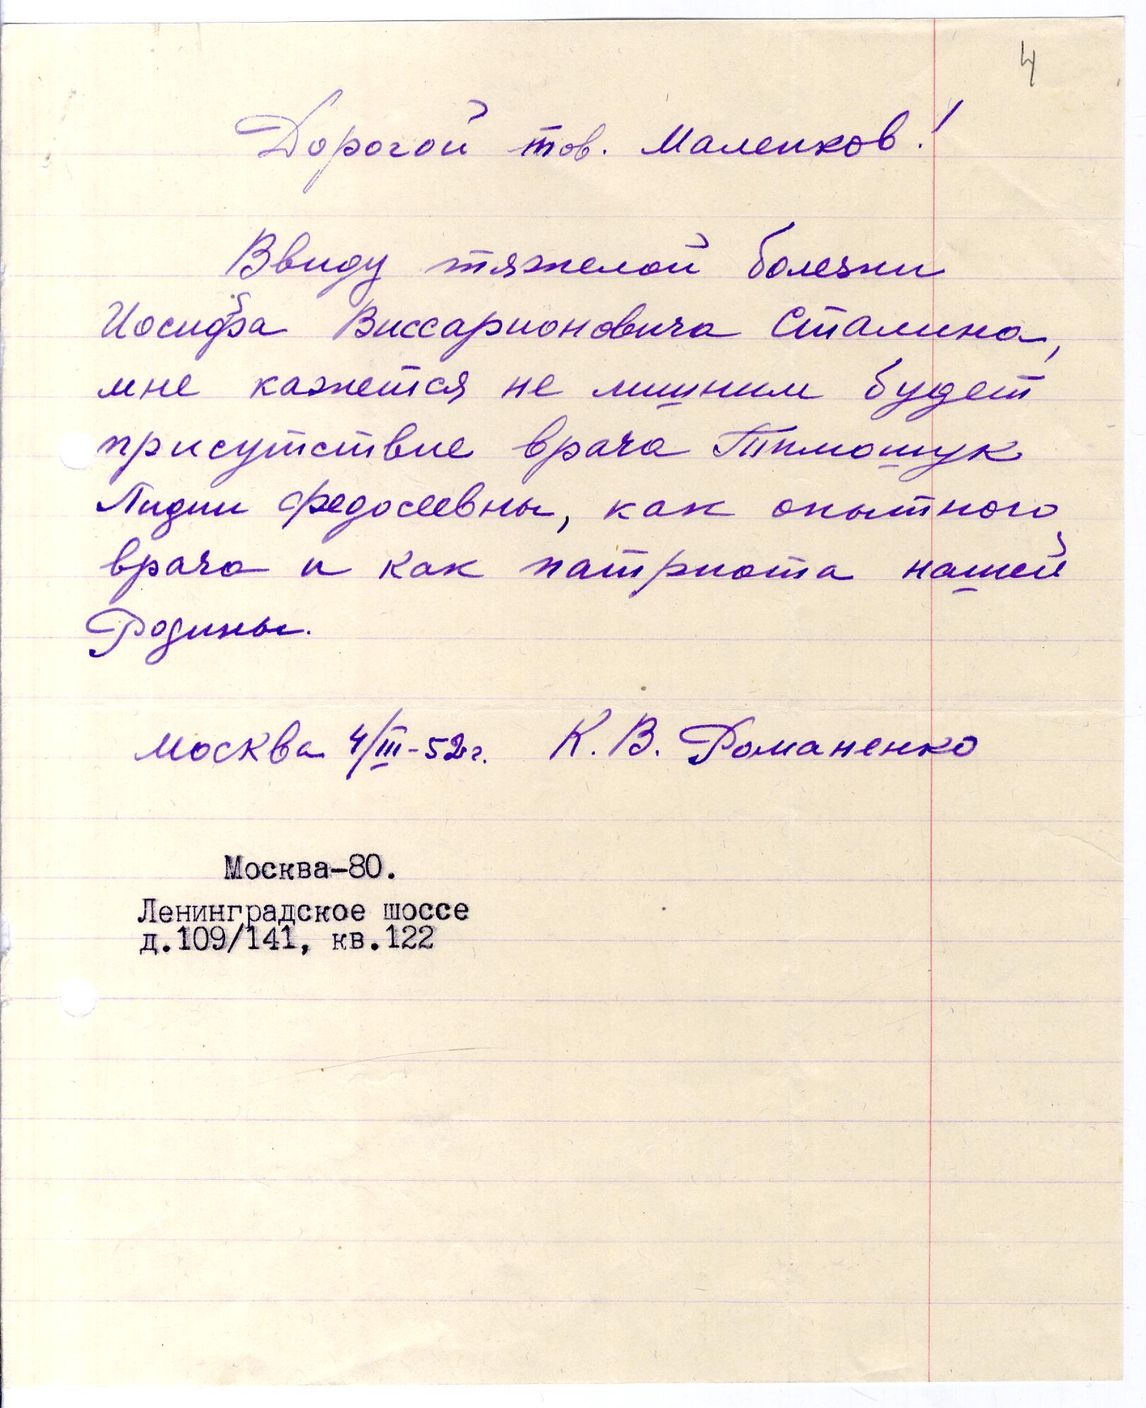 4
Дорогой тов. Маленков!
Ввиду тяжелой болезни
Иосифа Виссарионовича Сталина,
мне кажется не лишним будет
присутствие врача Тимошук
Лидии Федосеевны, как опытного
врача и как патриота нашей
Родины.
Москва 4/III-52г. К. В. Романенко
Москва-80.
Ленинградское шоссе
д.109/141, кв.122